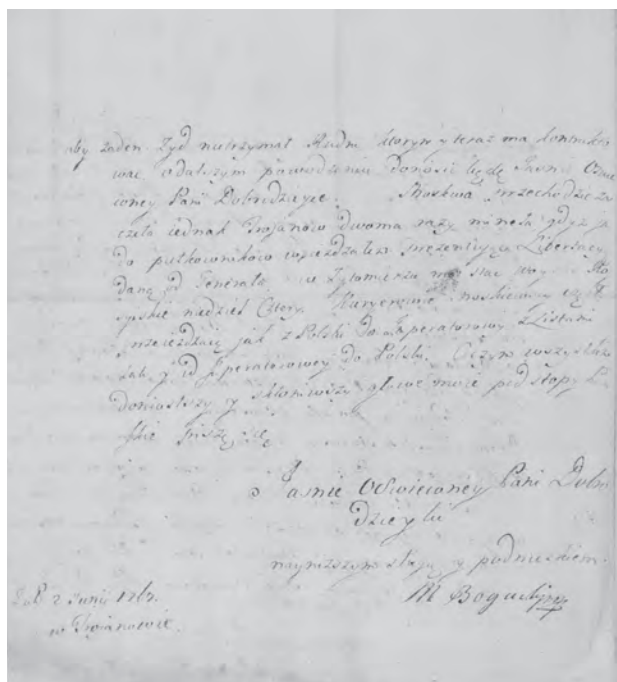 aby żaden Żyd nietrzymał Rudni ktorym y teraz ma kontrakto
wac, o dalszym powodzeniu donosić będę Jasnie Oświe
coney Pani Dobrodzayce. Moskwa przechodzic za
częła iednak Trojanow dwoma razy mineła gdyz ja
do pułkownikow wyieżdżałem prezentuiąc Libertacyą
daną od Generała. w Zytomierzu ma stac woysko
niedziel Cztery. Kuryerowie moskiewscy
przeieżdżaią jak z Polski do Imperatorowy z Listami
tak y od Imperatorowey do Polski. O czym wszystkim
doniosłszy y skłoniwszy głowę moię pod stopy
piszę się
Jasnie Oświeconey Pani Dobro
dzeyki
nayniższym sługą y podnuszkiem
M Boguckj
2 Junij 1767.
w Trojanowie.